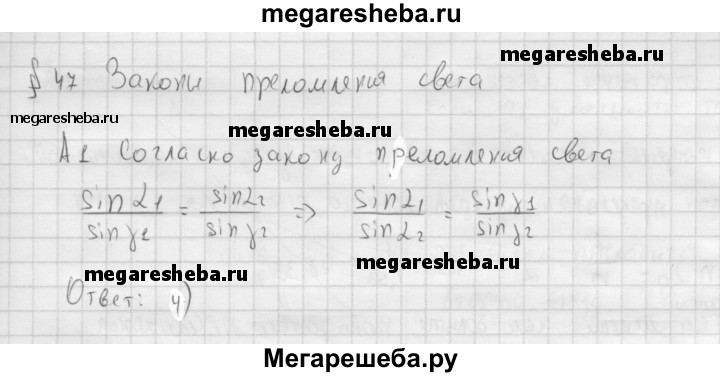 megaresheba.ru
§ 47 Законы преломления света
megaresheba.ru
megaresheba.ru
megaresheba.ru
А1 Согласно закону преломления света
sinα₁/sinγ₁ = sinα₂/sinγ₂ ⇒ sinα₁/sinα₂ = sinγ₁/sinγ₂
megaresheba.ru
megaresheba.ru
Ответ: 4)
Мегарешеба.ру